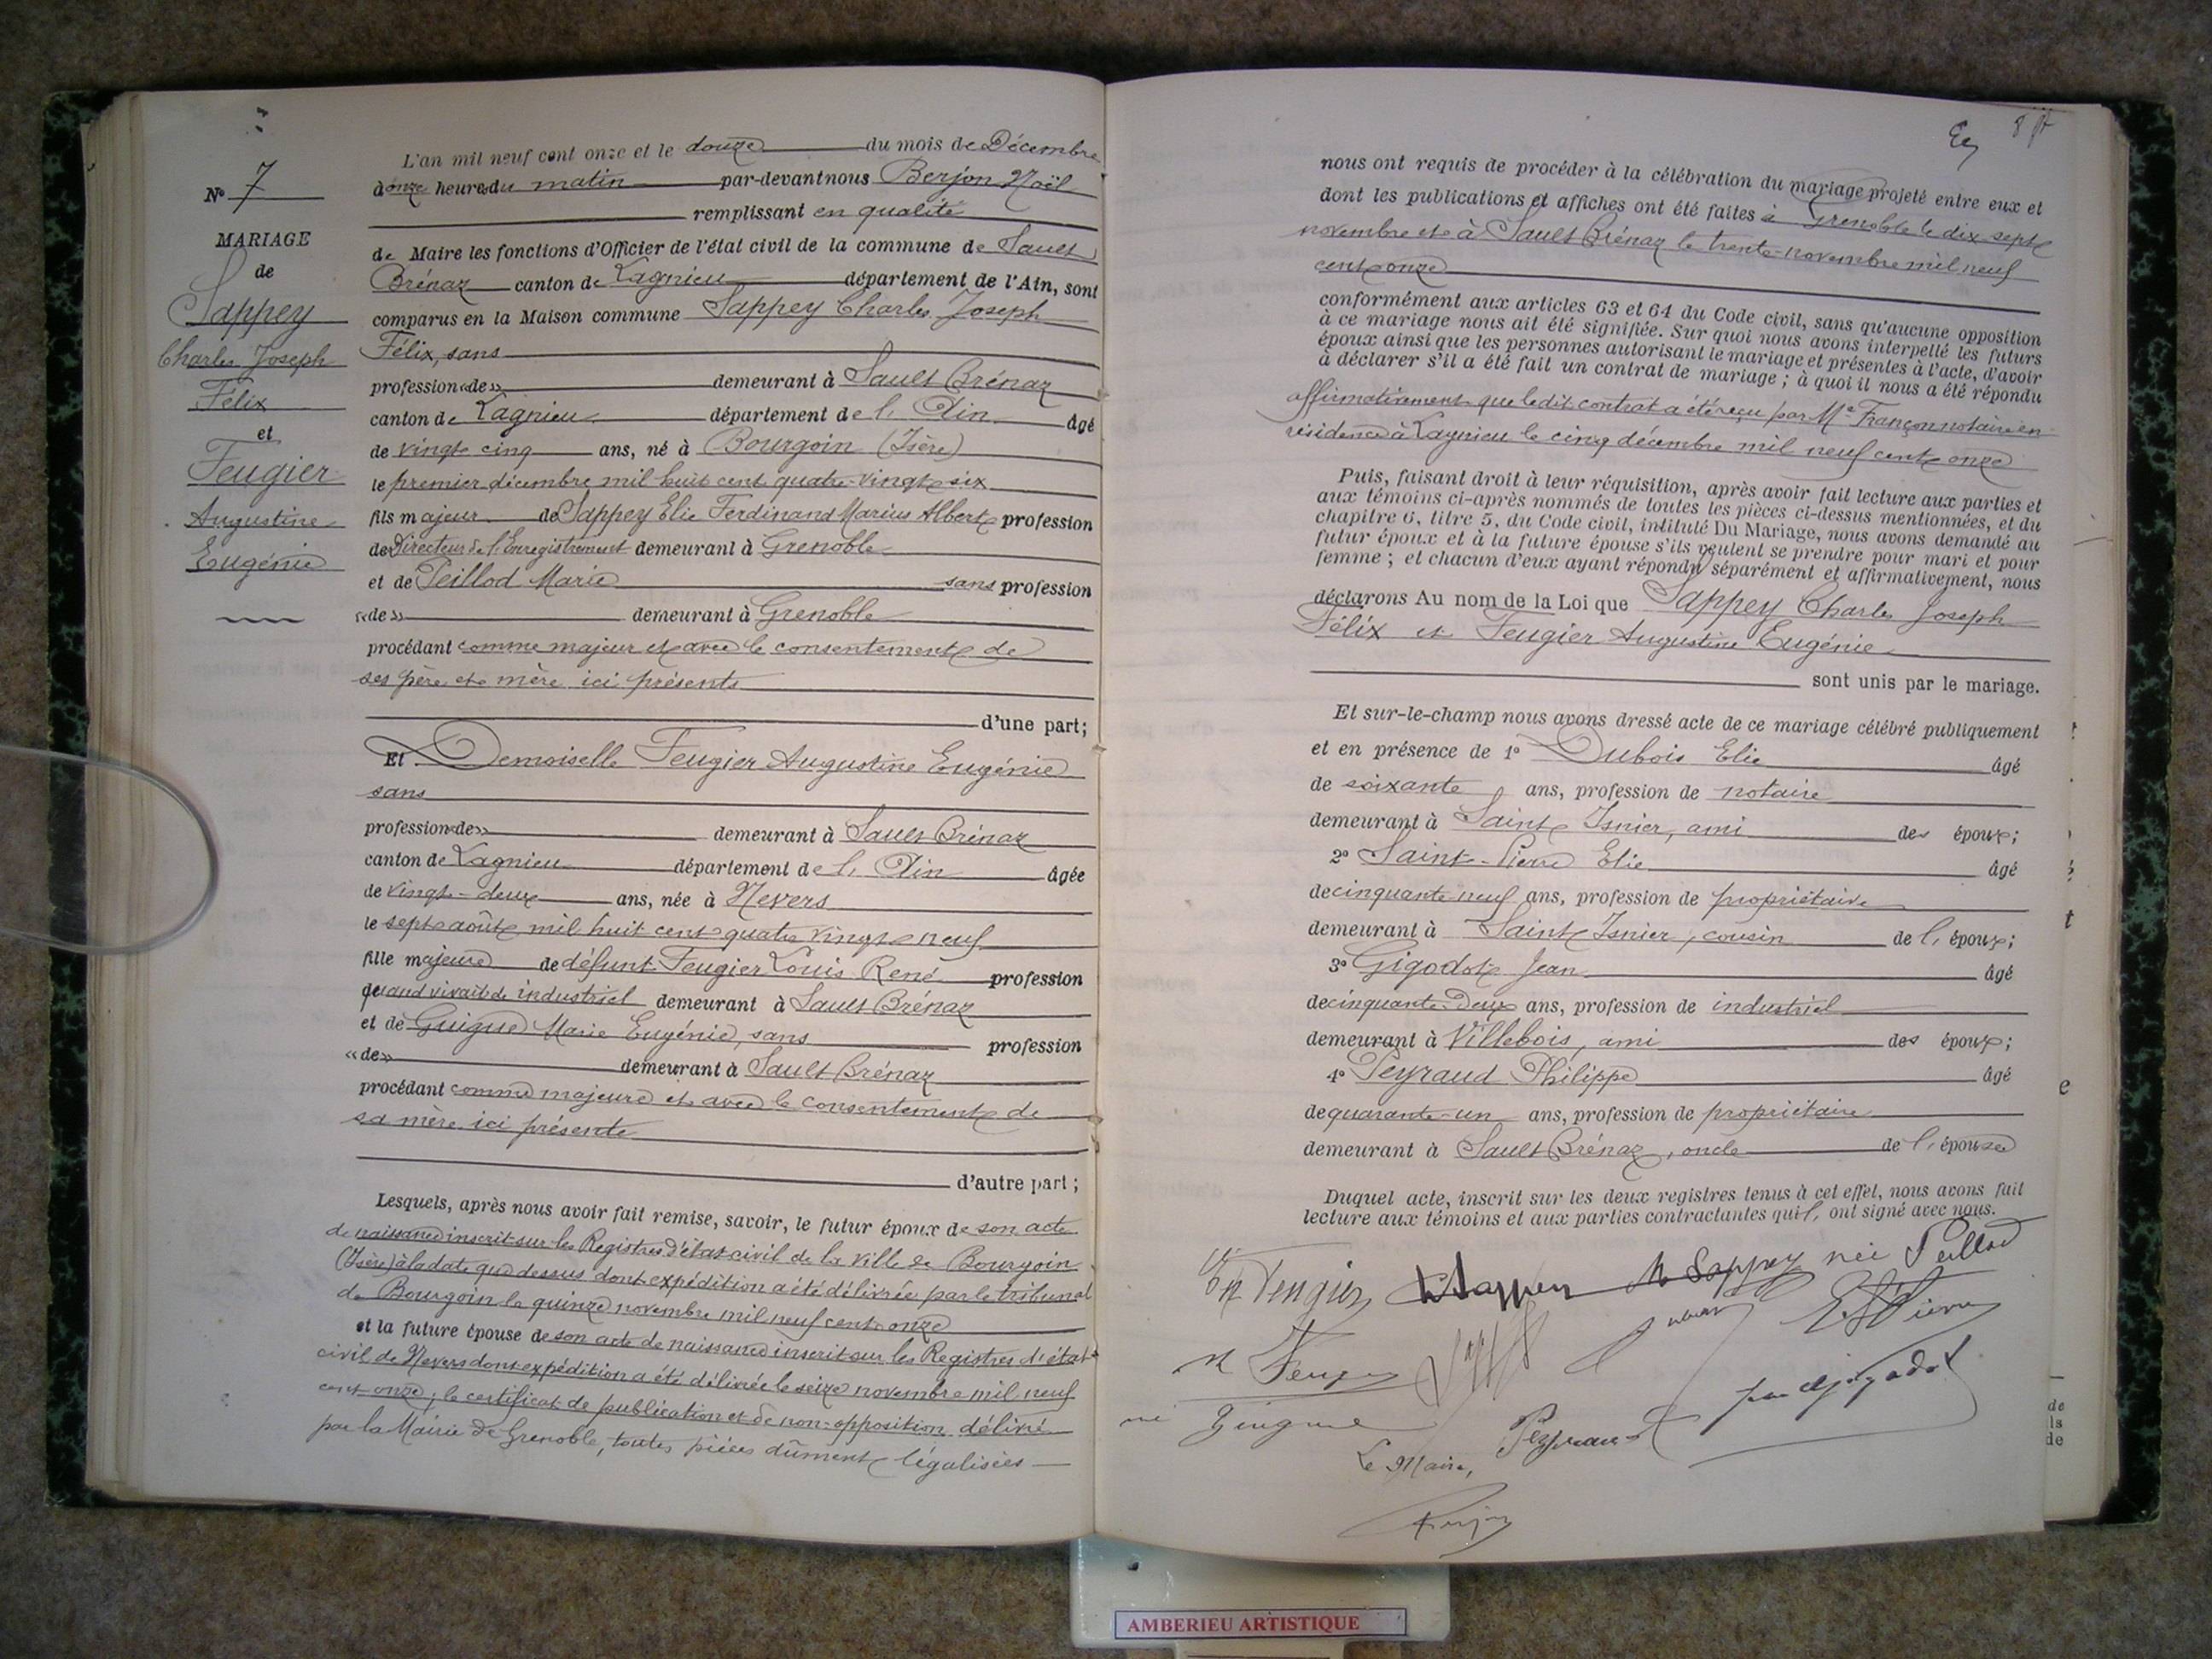 N° 7
MARIAGE
de
Sappey
Charles Joseph
Félix
et
Feugier
Augustine
Eugénie
L'an mil neuf cent onze et le douze du mois de Décembre
à onze heures du matin par-devant nous Berjon Noël
remplissant en qualité
de Maire les fonctions d'Officier de l'état civil de la commune de Sault
Brénaz canton de Lagnieu département de l'Ain, sont
comparus en la Maison commune Sappey Charles Joseph
Félix, sans
profession «de» demeurant à Sault Brénaz
canton de Lagnieu département de l'Ain âgé
de vingt cinq ans, né à Bourgoin (Isère)
le premier décembre mil huit cent quatre-vingt six
fils majeur de Sappey Elie Ferdinand Marius Albert profession
de Directeur de l'Enregistrement demeurant à Grenoble
et de Peillod Marie sans profession
«de» demeurant à Grenoble
procédant comme majeur et avec le consentement de
ses père et mère ici présents
d'une part;
Et Demoiselle Feugier Augustine Eugénie
sans
profession «de» demeurant à Sault Brénaz
canton de Lagnieu département de l'Ain âgée
de vingt-deux ans, née à Nevers
le sept août mil huit cent quatre vingt neuf
fille majeure de défunt Feugier Louis René profession
quand vivait de industriel demeurant à Sault Brénaz
et de Guigue Marie Eugénie, sans profession
«de» demeurant à Sault Brénaz
procédant comme majeure et avec le consentement de
sa mère ici présente
d'autre part;
Lesquels, après nous avoir fait remise, savoir, le futur époux de son acte
de naissance inscrit sur les Registres d'état civil de la ville de Bourgoin
(Isère) à la date que dessus dont expédition a été délivrée par le tribunal
de Bourgoin le quinze novembre mil neuf cent onze
et la future épouse de son acte de naissance inscrit sur les Registres d'état
civil de Nevers dont expédition a été délivrée le seize novembre mil neuf
cent onze; le certificat de publication et de non-opposition délivré
par la Mairie de Grenoble, toutes pièces dûment légalisées
nous ont requis de procéder à la célébration du mariage projeté entre eux et
dont les publications et affiches ont été faites à Grenoble le dix sept
novembre et à Sault Brénaz le trente novembre mil neuf
cent onze
conformément aux articles 63 et 64 du Code civil, sans qu'aucune opposition
à ce mariage nous ait été signifiée. Sur quoi nous avons interpellé les futurs
époux ainsi que les personnes autorisant le mariage et présentes à l'acte, d'avoir
à déclarer s'il a été fait un contrat de mariage; à quoi il nous a été répondu
affirmativement que ledit contrat a été reçu par Me Françon notaire en
résidence à Lagnieu le cinq décembre mil neuf cent onze
Puis, faisant droit à leur réquisition, après avoir fait lecture aux parties et
aux témoins ci-après nommés de toutes les pièces ci-dessus mentionnées, et du
chapitre 6, titre 5, du Code civil, intitulé Du Mariage, nous avons demandé au
futur époux et à la future épouse s'ils veulent se prendre pour mari et pour
femme; et chacun d'eux ayant répondu séparément et affirmativement, nous
déclarons Au nom de la Loi que Sappey Charles Joseph
Félix et Feugier Augustine Eugénie
sont unis par le mariage.
Et sur-le-champ nous avons dressé acte de ce mariage célébré publiquement
et en présence de 1° Dubois Elie âgé
de soixante ans, profession de notaire
demeurant à Saint Isnier, ami des époux;
2° Saint-Pierre Elie âgé
de cinquante neuf ans, profession de propriétaire
demeurant à Saint Isnier, cousin de l'époux;
3° Gigodot Jean âgé
de cinquante-deux ans, profession de industriel
demeurant à Villebois, ami des époux;
4° Peyraud Philippe âgé
de quarante-un ans, profession de propriétaire
demeurant à Sault Brénaz, oncle de l'épouse
Duquel acte, inscrit sur les deux registres tenus à cet effet, nous avons fait
lecture aux témoins et aux parties contractantes qui, ont signé avec nous.
Feugier Sappey M Sappey née Peillod
Feugier
née Guigue Peyraud Jean Gigodot
Le Maire,
Berjon
AMBERIEU ARTISTIQUE